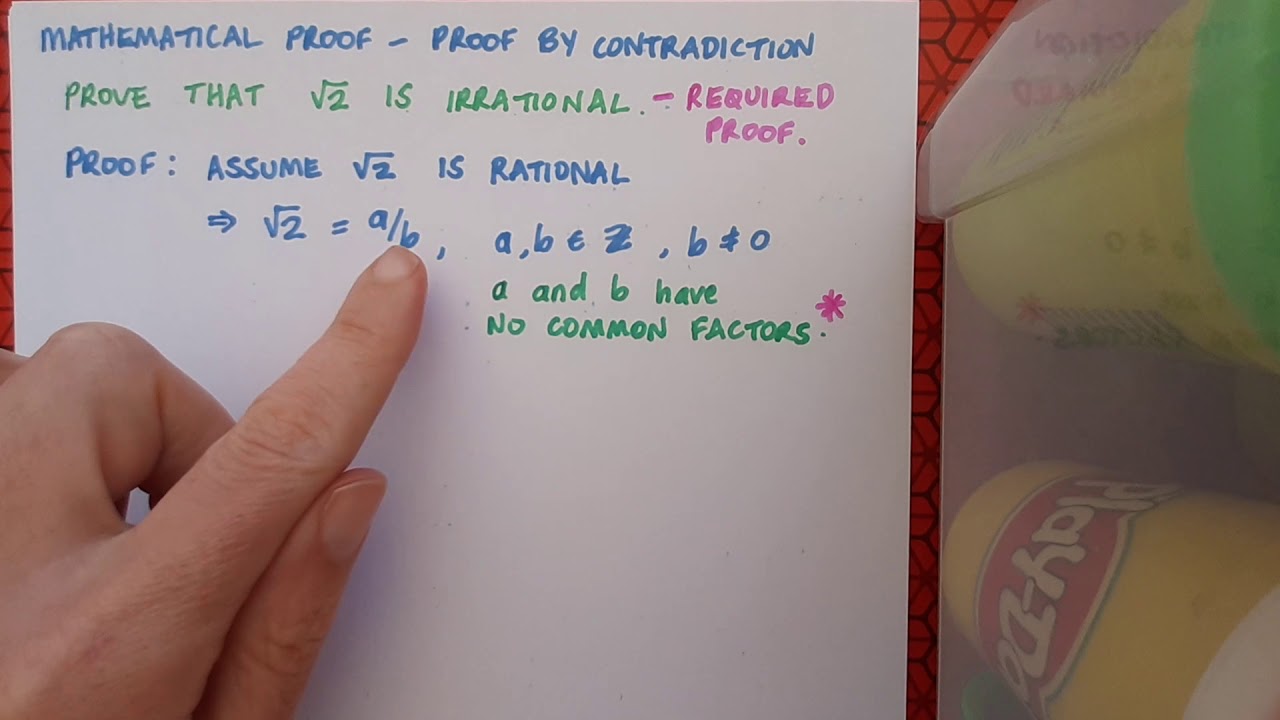 MATHEMATICAL PROOF - PROOF BY CONTRADICTION
PROVE THAT √2 IS IRRATIONAL. - REQUIRED
PROOF.
PROOF: ASSUME √2 IS RATIONAL
⇒ √2 = a/b, a, b ∈ ℤ, b ≠ 0
a and b have
NO COMMON FACTORS. *
Play-Do